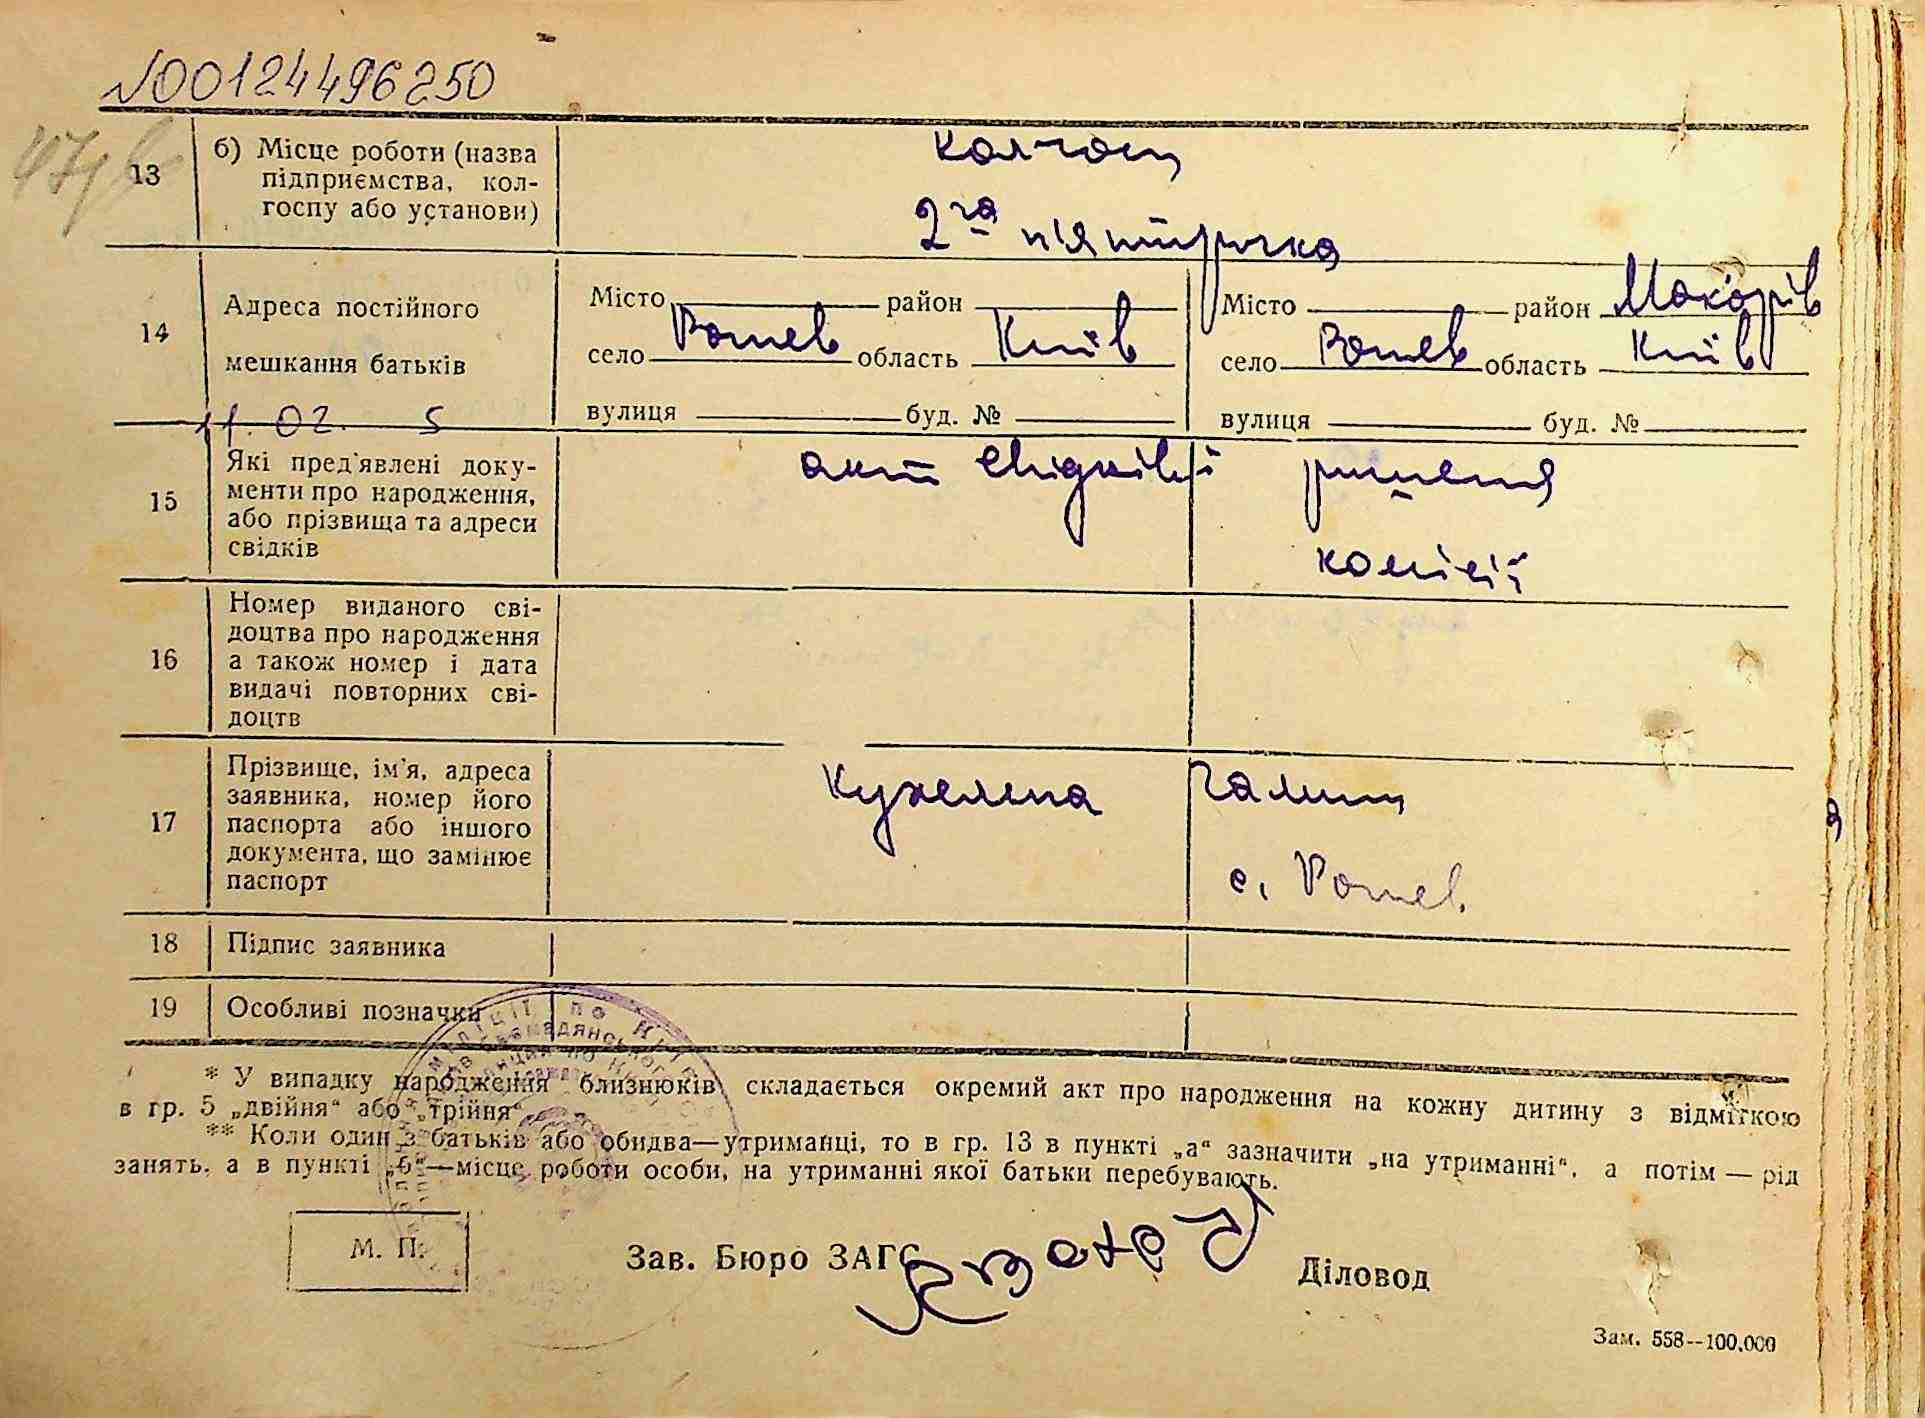 №00124496250
13 б) Місце роботи (назва
підприємства, кол-
госпу або установи)
колгосп
2га п'ятирічка
14 Адреса постійного
мешкання батьків
Місто район Місто район Макарів
село область Київ село область Київ
вулиця буд. № вулиця буд. №
11.02. 5
15 Які пред'явлені доку-
менти про народження,
або прізвища та адреси
свідків
акт свідків і рішення
комісії
16 Номер виданого сві-
доцтва про народження
а також номер і дата
видачі повторних сві-
доцтв
17 Прізвище, ім'я, адреса
заявника, номер його
паспорта або іншого
документа, що замінює
паспорт
с.
18 Підпис заявника
19 Особливі позначки
* У випадку народження близнюків складається окремий акт про народження на кожну дитину з відміткою
в гр. 5 „двійня“ або „трійня“.
** Коли один з батьків або обидва—утриманці, то в гр. 13 в пункті „а“ зазначити „на утриманні“, а потім — рід
занять, а в пункті „б“—місце роботи особи, на утриманні якої батьки перебувають.
М. П.
Зав. Бюро ЗАГС
Діловод
Зам. 558--100.000